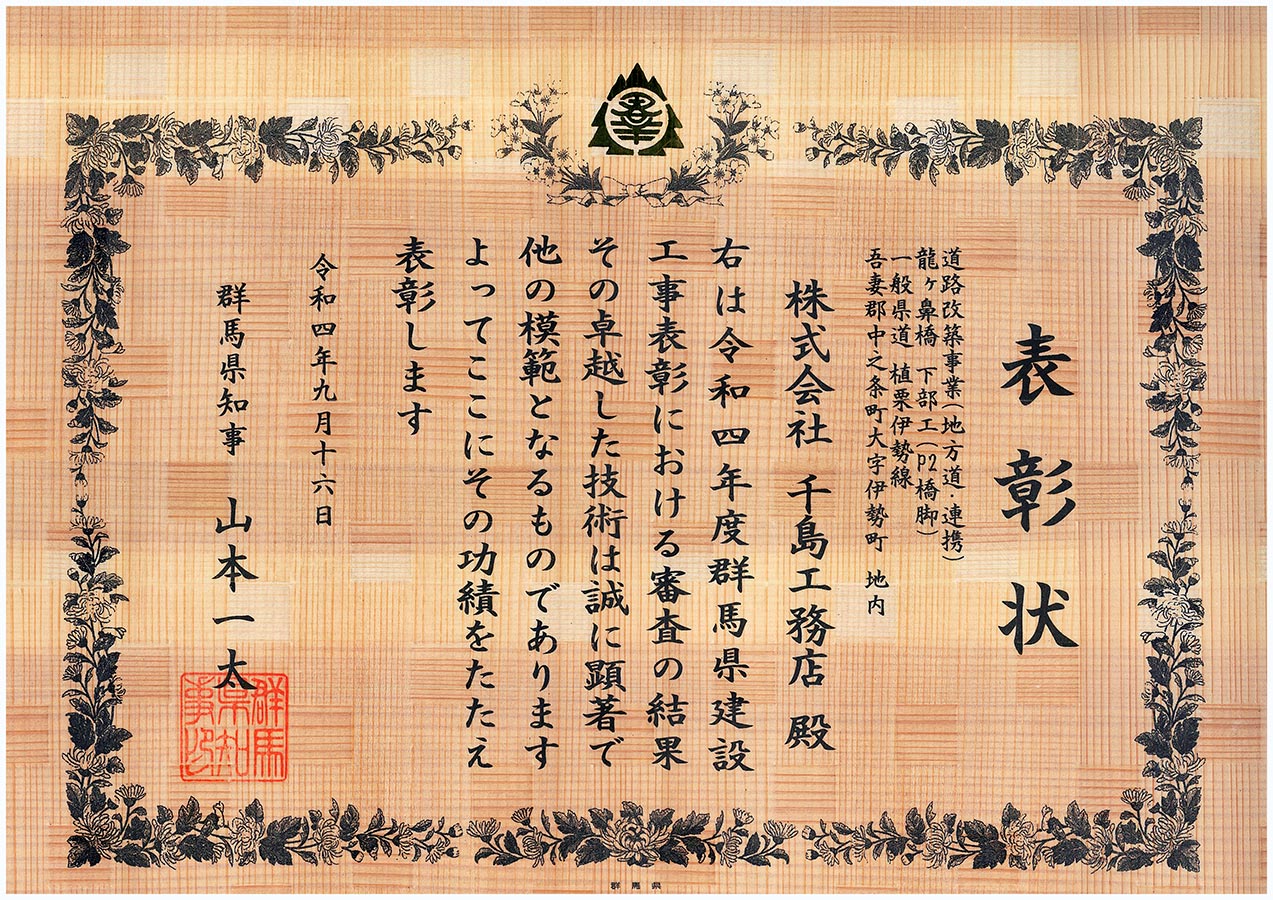 表彰状
道路改築事業(地方道・連携)
龍ヶ鼻橋 下部工(P2橋脚)
一般県道 植栗伊勢線
吾妻郡中之条町大字伊勢町 地内
株式会社 千島工務店 殿
右は令和四年度群馬県建設
工事表彰における審査の結果
その卓越した技術は誠に顕著で
他の模範となるものであります
よってここにその功績をたたえ
表彰します
令和四年九月十六日
群馬県知事 山本一太
群馬
県知
事印
群馬県